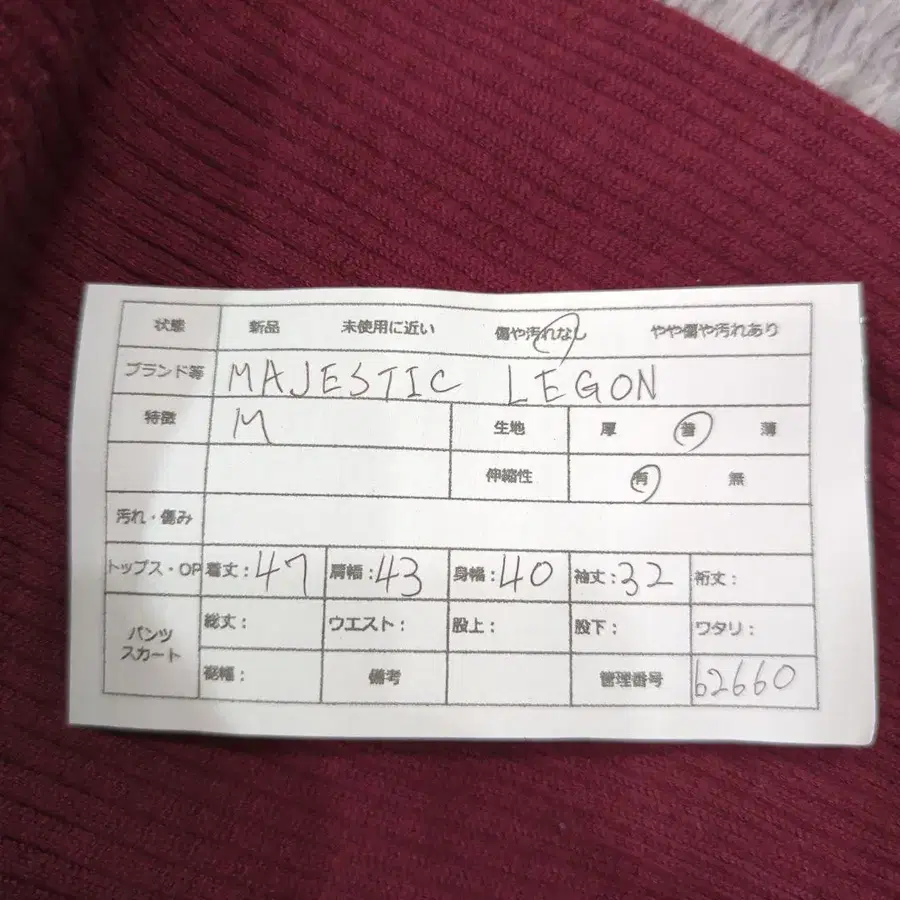 状態 新品 未使用に近い 傷や汚れなし やや傷や汚れあり
ブランド等 MAJESTIC LEGON
特徴 M 生地 厚 普 薄
伸縮性 有 無
汚れ・傷み
トップス・OP 着丈:47 肩幅:43 身幅:40 袖丈:32 裄丈:
パンツ
スカート
総丈: ウエスト: 股上: 股下: ワタリ:
裾幅: 備考 管理番号 62660